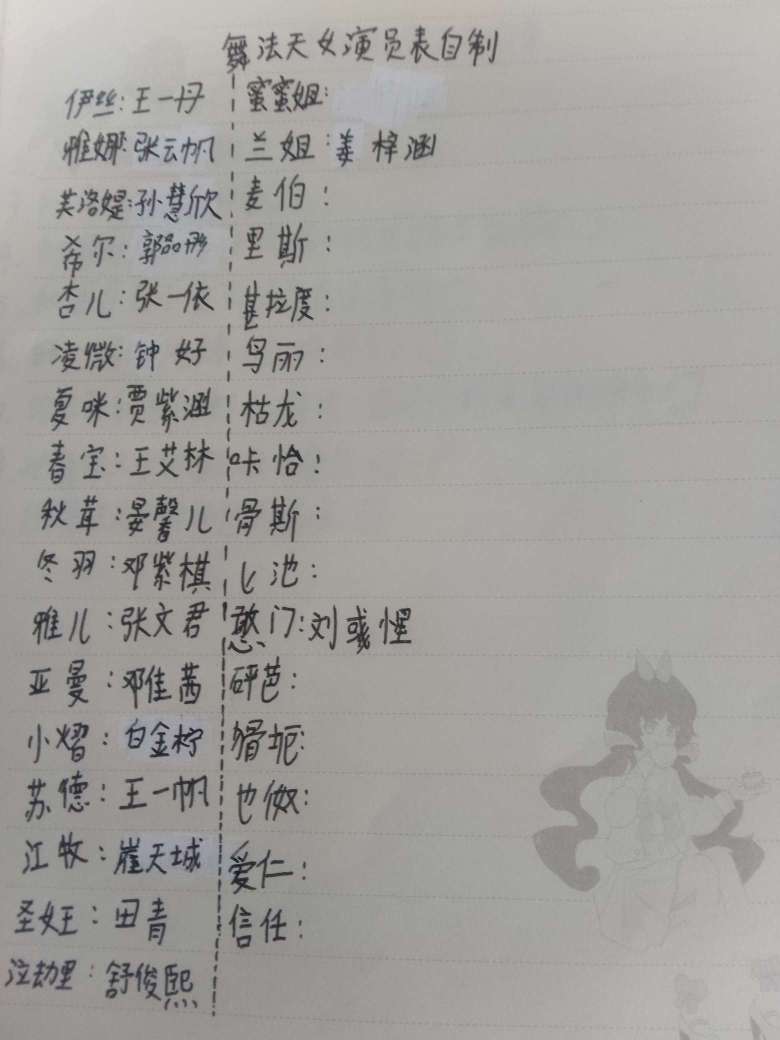 舞法天女演员表自制
伊丝:王一丹
雅娜:张云帆
芙洛媞:孙慧欣
希尔:郭品彤
杏儿:张一依
凌微:钟好
夏咪:贾紫涵
春宝:王艾林
秋茸:晏馨儿
冬羽:邓紫棋
雅儿:张文君
亚曼:邓佳茜
小熠:白金柠
苏德:王一帆
江牧:崖天城
圣女王:田青
泣劫里:舒俊熙
蜜蜜姐:
兰姐:姜梓涵
麦伯:
里斯:
甚拉度:
鸟丽:
枯龙:
咔恰:
骨斯:
飞池:
憨门:刘彧惺
砰芭:
扼:
也做:
爱仁:
信任: